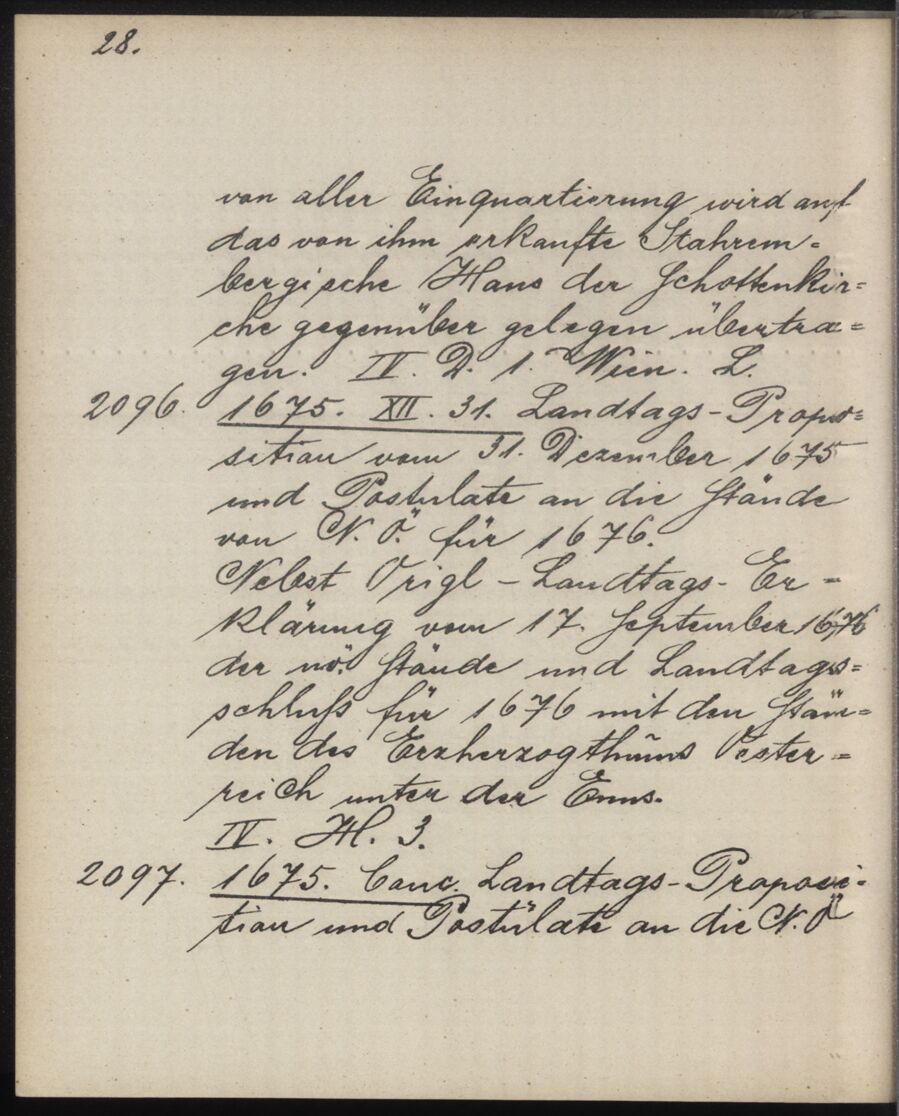 28.
von aller Einquartierung wird auf
das von ihm erkaufte Stahrem=
bergische Haus der Schottenkir=
che gegenüber gelegen übertra=
gen. IV. D. 1. Wien. L.
2096. 1675. XII. 31. Landtags-Propo=
sition vom 31. Dezember 1675
und Postulate an die Stände
von N. Ö. für 1676.
Nebst Origl-Landtags-Er=
klärung vom 17. September 1676
der nö. Stände und Landtags=
schluß für 1676 mit den Stän=
den des Erzherzogthums Oester=
reich unter der Enns.
IV. H. 3.
2097. 1675. Conc. Landtags-Proposi=
tion und Postulate an die N. Ö